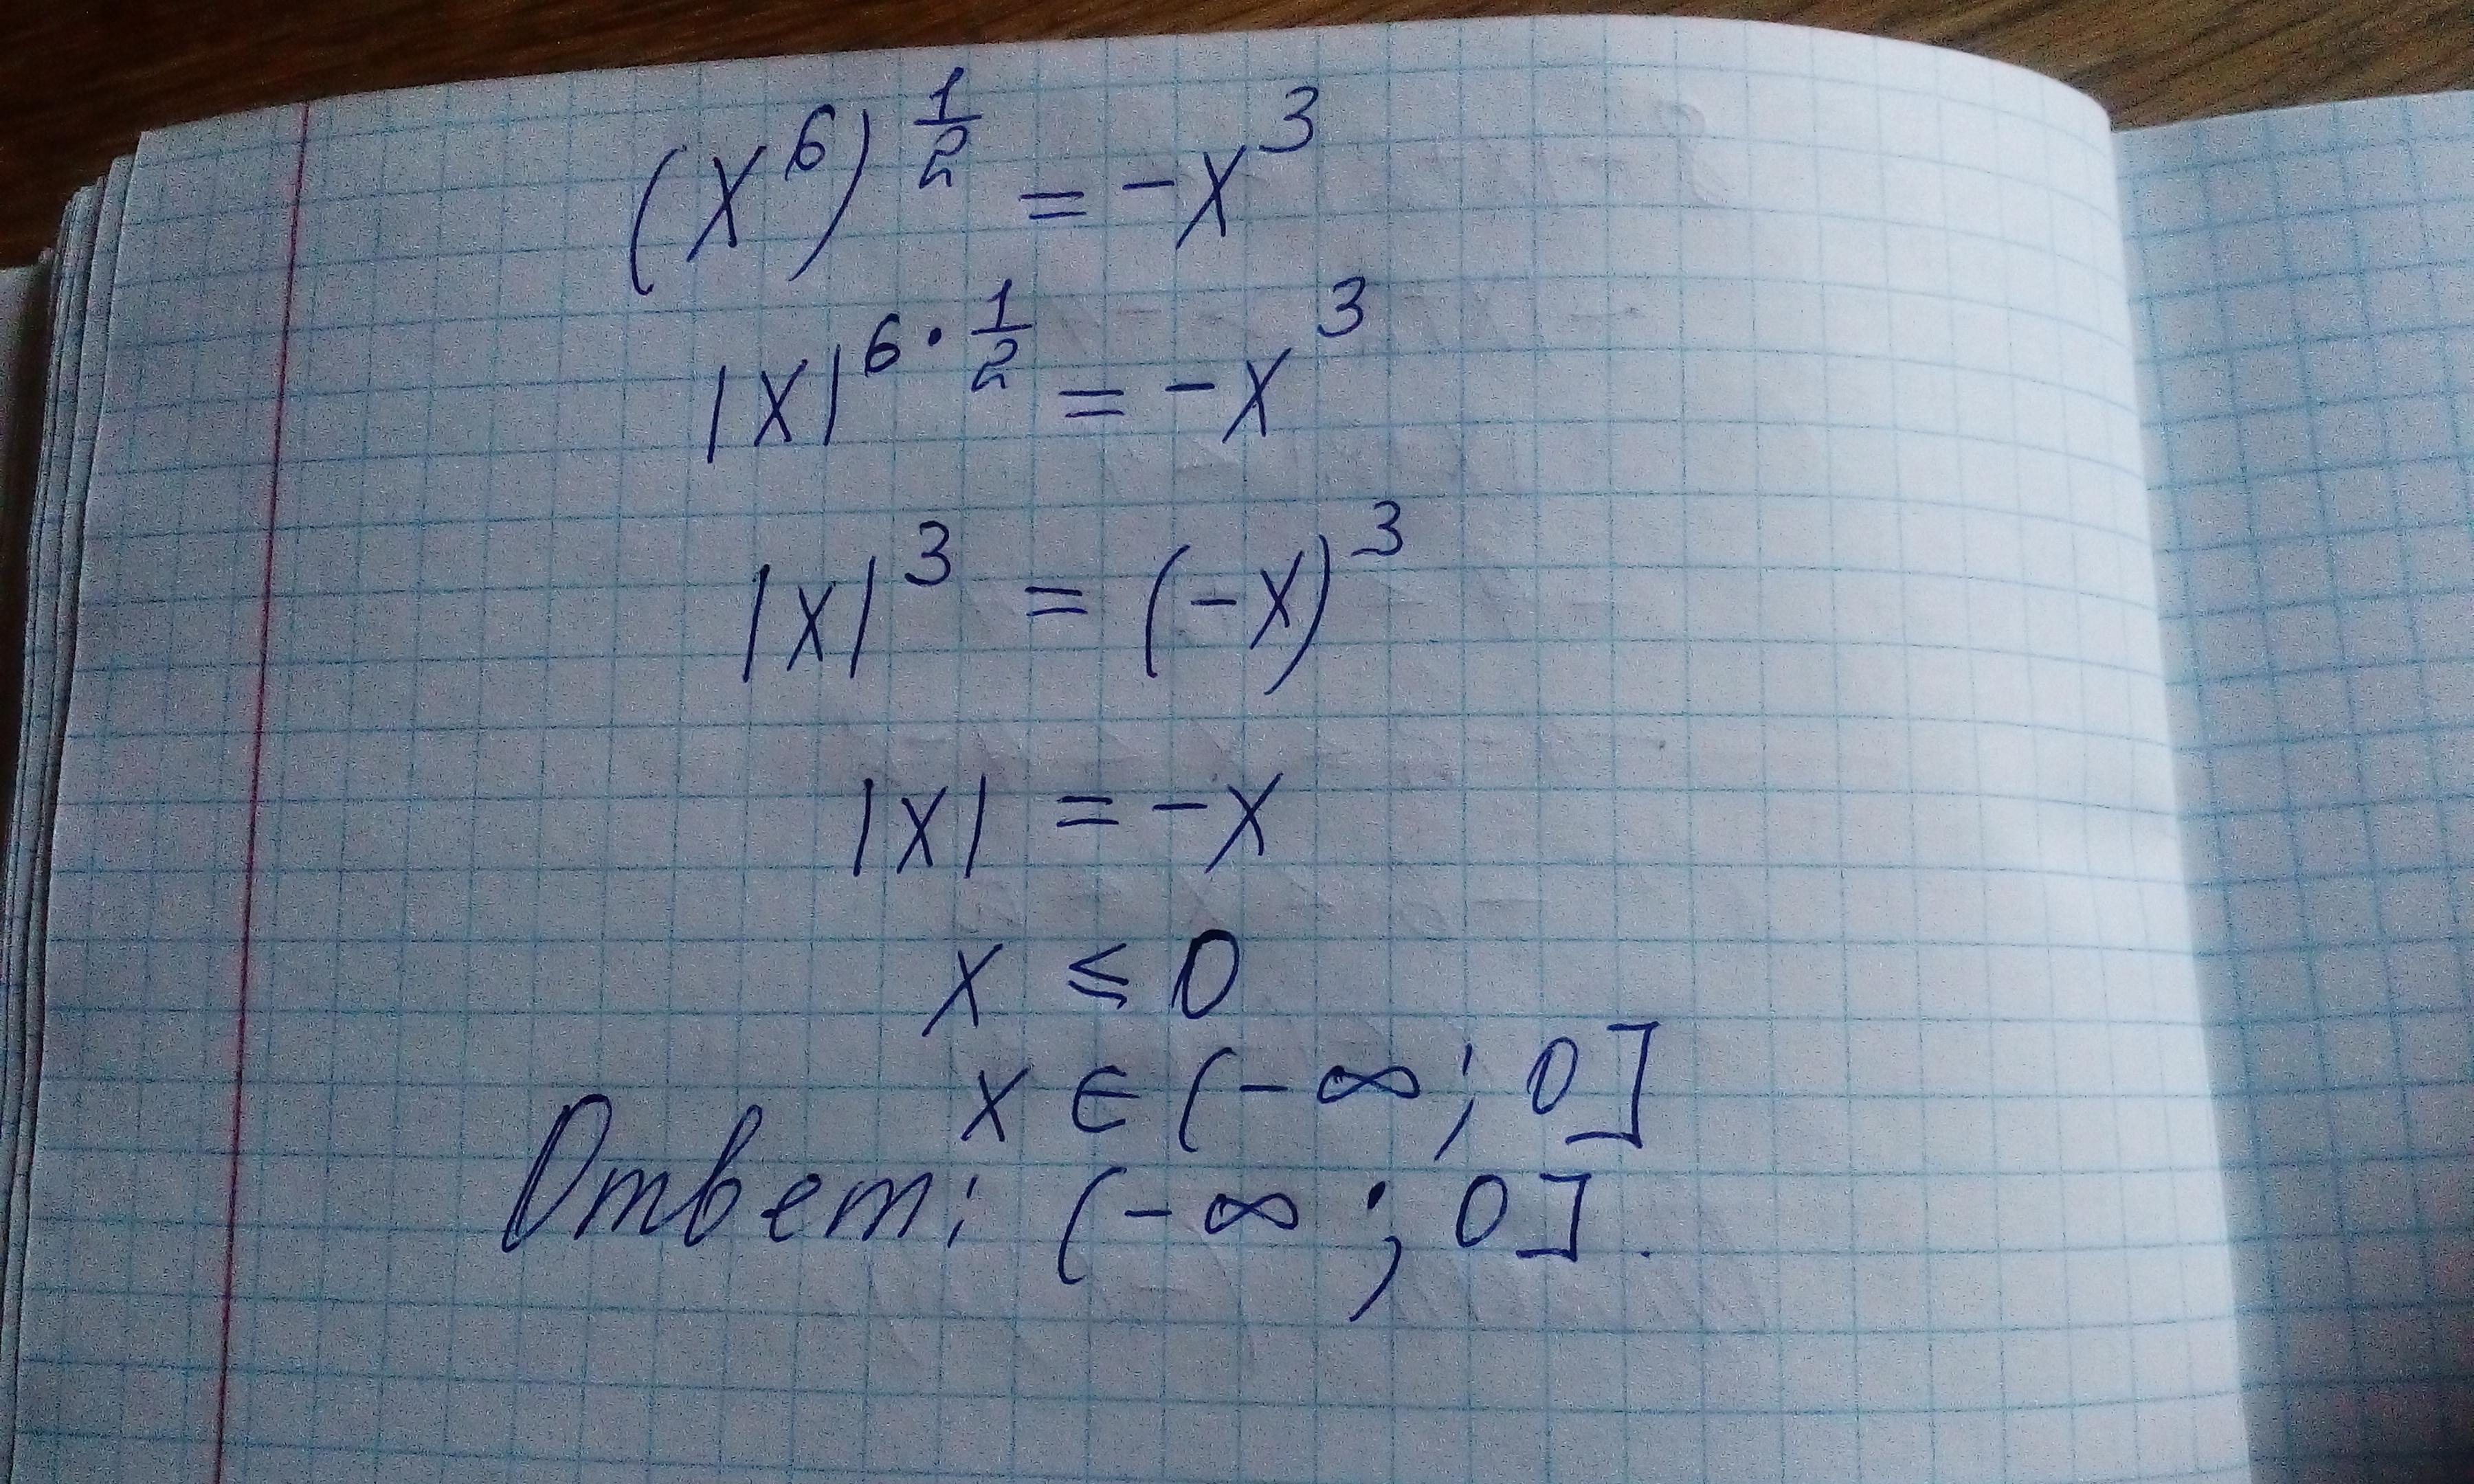 (x⁶)^(1/2) = -x³
|x|^(6·1/2) = -x³
|x|³ = (-x)³
|x| = -x
x ≤ 0
x ∈ (-∞; 0]
Ответ: (-∞; 0].